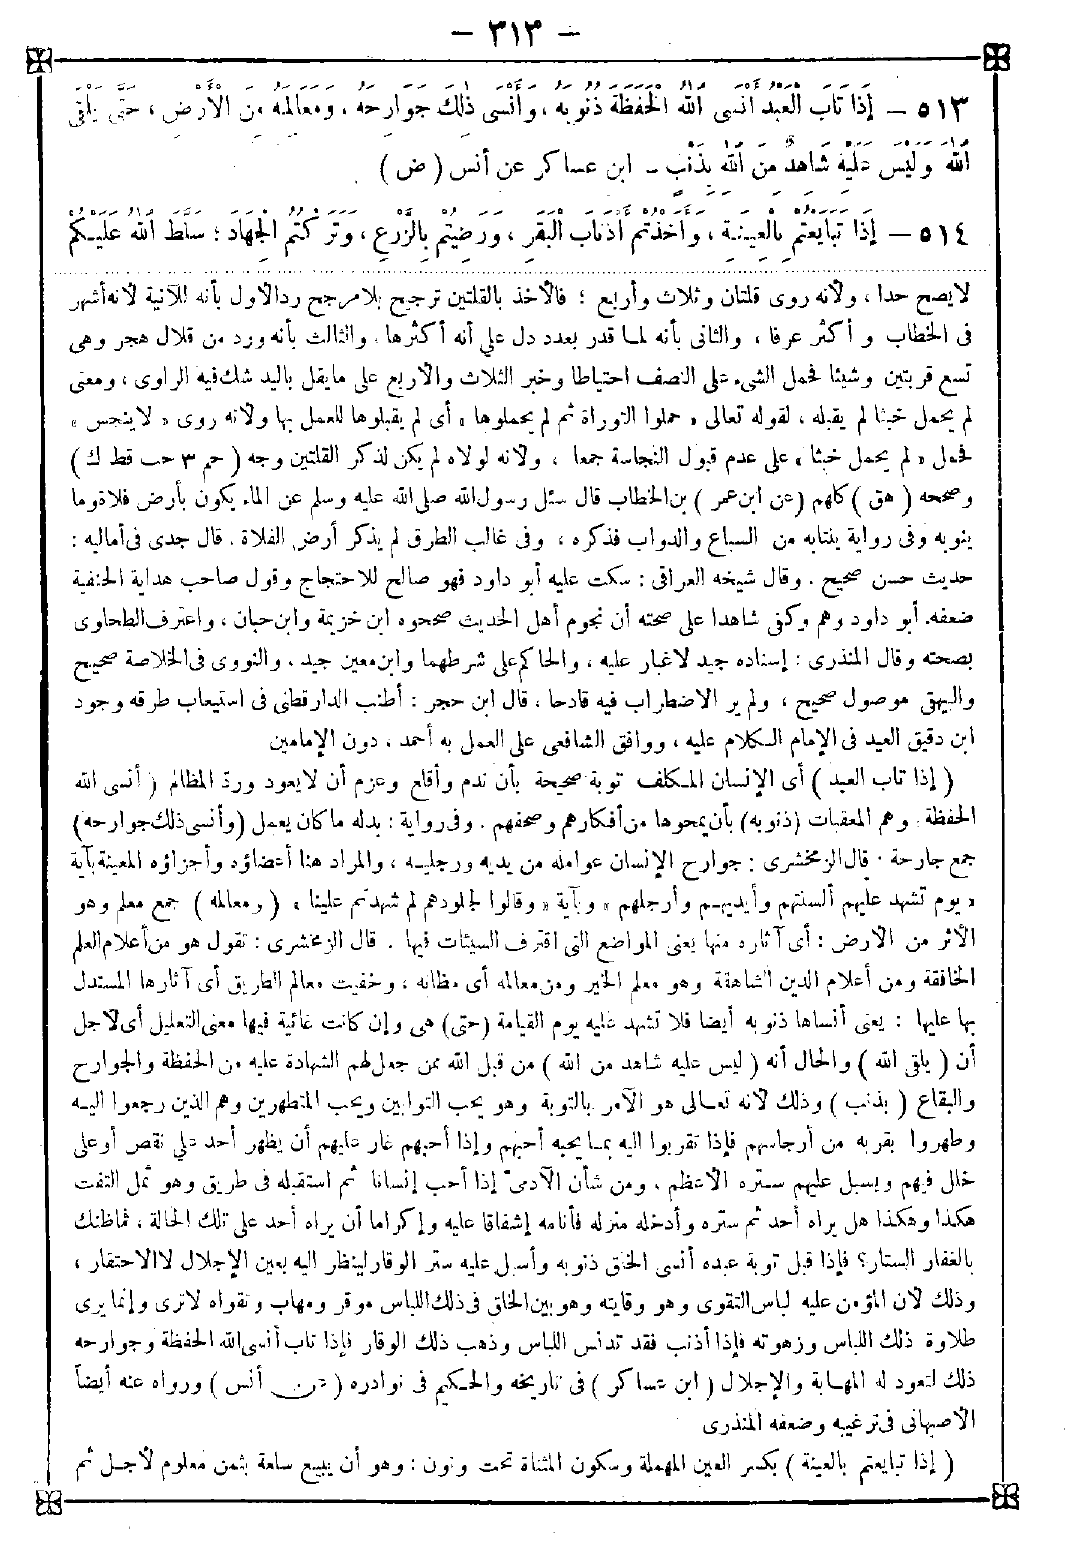 - ٣١٣ -
٥١٣ - إِذَا تَابَ الْعَبْدُ أَنْسَى اللَّهُ الْحَفَظَةَ ذُنُوبَهُ ، وَأَنْسَى ذٰلِكَ جَوَارِحَهُ ، وَمَعَالِمَهُ مِنَ الْأَرْضِ ، حَتَّى يَلْقَى
اللَّهَ وَلَيْسَ عَلَيْهِ شَاهِدٌ مِنَ اللَّهِ بِذَنْبٍ - ابن عساكر عن أنس ( ض )
٥١٤ - إِذَا تَبَايَعْتُمْ بِالْعِينَةِ ، وَأَخَذْتُمْ أَذْنَابَ الْبَقَرِ ، وَرَضِيتُمْ بِالزَّرْعِ ، وَتَرَكْتُمُ الْجِهَادَ ؛ سَلَّطَ اللَّهُ عَلَيْكُمْ
لايصح حدا ، ولأنه روى قلتان وثلاث وأربع ؛ فالأخذ بالقلتين ترجيح بلامرجح ردالأول بأنه للآنية لأنه أشهر
فى الخطاب و أكثر عرفا ، والثانى بأنه لما قدر بعدد دل على أنه أكثرها . والثالث بأنه ورد من قلال هجر وهى
تسع قربتين وشيئا فحمل الشىء على النصف احتياطا وخبر الثلاث والأربع على مايقل باليد شك فيه الراوى ، ومعنى
لم يحمل خبثا لم يقبله ، لقوله تعالى « حملوا التوراة ثم لم يحملوها » أى لم يقبلوها للعمل بها ولأنه روى « لاينجس »
فحمل « لم يحمل خبثا » على عدم قبول النجاسة جمعا ، ولأنه لولاه لم يكن لذكر القلتين وجه ( حم ٣ حب قط ك )
وصححه ( هق ) كلهم (عن ابن عمر ) بن الخطاب قال سئل رسول الله صلى الله عليه وسلم عن الماء يكون بأرض فلاة وما
ينوبه وفى رواية ينتابه من السباع والدواب فذكره ، وفى غالب الطرق لم يذكر أرض الفلاة . قال جدى فى أماليه :
حديث حسن صحيح . وقال شيخه العراقى : سكت عليه أبو داود فهو صالح للاحتجاج وقول صاحب هداية الحنفية
ضعفه. أبو داود وهم وكفى شاهدا على صحته أن نجوم أهل الحديث صححوه ابن خزيمة وابن حبان ، واعترف الطحاوى
بصحته وقال المنذرى : إسناده جيد لاغبار عليه ، والحاكم على شرطهما وابن معين جيد ، والنووى فى الخلاصة صحيح
والبيهقى موصول صحيح ، ولم ير الاضطراب فيه قادحا ، قال ابن حجر : أطنب الدارقطنى فى استيعاب طرقه وجود
ابن دقيق العيد فى الإمام الكلام عليه ، ووافق الشافعى على العمل به أحمد ، دون الإمامين
( إذا تاب العبد ) أى الإنسان المكلف توبة صحيحة بأن ندم وأقلع وعزم أن لايعود ورد المظالم ( أنسى الله
الحفظة وهم المعقبات (ذنوبه) بأن يمحوها من أفكارهم وصحفهم . وفى رواية : بدله ماكان يعمل (وأنسى ذلك جوارحه)
جمع جارحة . قال الزمخشرى : جوارح الإنسان عوامله من يديه ورجليه ، والمراد هنا أعضاؤه وأجزاؤه المعينة بآية
« يوم تشهد عليهم ألسنتهم وأيديهم وأرجلهم » وبآية « وقالوا لجلودهم لم شهدتم علينا » ( ومعالمه ) جمع معلم وهو
الأثر من الأرض : أى آثاره منها يعنى المواضع التى اقترف السيئات فيها . قال الزمخشرى : تقول هو من أعلام العلم
الخافقة ومن أعلام الدين الشاهقة وهو معلم الخير ومن معالمه أى مظانه ، وخفيت معالم الطريق أى آثارها المستدل
بها عليها : يعنى أنساها ذنوبه أيضا فلا تشهد عليه يوم القيامة (حتى) هى وإن كانت غائية فيها معنى التعليل أى لأجل
أن ( يلقى الله ) والحال أنه ( ليس عليه شاهد من الله ) من قبل الله ممن جعل لهم الشهادة عليه من الحفظة والجوارح
والبقاع ( بذنب ) وذلك لأنه تعالى هو الآمر بالتوبة وهو يحب التوابين ويحب المتطهرين وهم الذين رجعوا اليه
وطهروا بقربه من أرجاسهم فإذا تقربوا اليه بما يحبه أحبهم وإذا أحبهم غار عليهم أن يظهر أحد على نقص أو على
خلل فيهم ويسبل عليهم ستره الأعظم ، ومن شأن الآدمى إذا أحب إنسانا ثم استقبله فى طريق وهو ثمل التفت
هكذا وهكذا هل يراه أحد ثم ستره وأدخله منزله فأنامه إشفاقا عليه وإكراما أن يراه أحد على تلك الحالة ، فماظنك
بالغفار الستار؟ فإذا قبل توبة عبده أنسى الخلق ذنوبه وأسبل عليه ستر الوقار لينظر اليه بعين الإجلال لاالاحتقار ،
وذلك لأن المؤمن عليه لباس التقوى وهو وقايته وهو بين الخلق فى ذلك اللباس موقر ومهاب وتقواه لاترى وإنما يرى
طلاوة ذلك اللباس وزهوته فإذا أذنب فقد تدنس اللباس وذهب ذلك الوقار فإذا تاب أنسى الله الحفظة وجوارحه
ذلك لتعود له المهابة والإجلال ( ابن عساكر ) فى تاريخه والحكيم فى نوادره ( عن أنس ) ورواه عنه أيضاً
الأصبهانى فى ترغيبه وضعفه المنذرى
( إذا تبايعتم بالعينة ) بكسر العين المهملة وسكون المثناة تحت ونون : وهو أن يبيع سلعة بثمن معلوم لأجل ثم